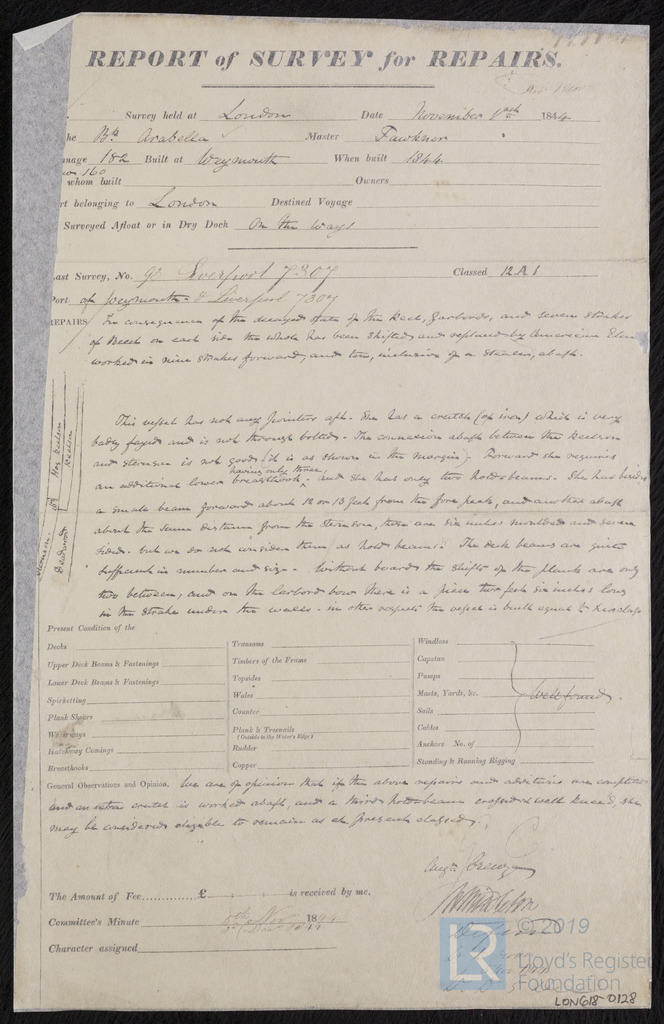 REPORT of SURVEY for REPAIRS.
Survey held at London Date November 1844
he Bk Arabella Master Fawkner
nage 182 Built at Weymouth When built 1844
160
whom built Owners
rt belonging to London Destined Voyage
Surveyed Afloat or in Dry Dock On the ways
ast Survey, No. Liverpool 7307 Classed 12 A 1
Port of Weymouth & Liverpool 7307
REPAIRS In consequence of the decayed state of the Keel, Garboards, and seven strakes
of Beech on each side the whole has been shifted and replaced by American Elm
worked in nine strakes forward, and ten, inclusive of a stealer, abaft.
This vessel has not any pointers aft. She has a crutch (of iron) which is very
badly fayed and is not through bolted. The connexion abaft between the Keelson
and sternson is not good (it is as shown in the margin). Forward she requires
having only three
an additional lower breasthook, and she has only two hold beams. She has besides
a small beam forward about 12 or 13 feet from the fore peak, and another abaft
about the same distance from the sternson, these are six inches moulded and seven
sided. but we do not consider them as hold beams. The deck beams are quite
sufficient in number and size. Without board the shifts of the planks are only
two between, and on the larboard bow there is a piece two feet six inches long
in the strake under the wales. in other respects the vessel is built equal to her class
Hog Keelson
Keelson
Sternson
Deadwood
Present Condition of the
Decks
Upper Deck Beams & Fastenings
Lower Deck Beams & Fastenings
Spirketting
Plank Sheers
Waterways
Hatchway Comings
Breasthooks
Transoms
Timbers of the Frame
Topsides
Wales
Counter
Plank & Treenails
(Outside to the Water's Edge)
Rudder
Copper
Windlass
Capstan
Pumps
Masts, Yards, &c. Well found.
Sails
Cables
Anchors No. of
Standing & Running Rigging
General Observations and Opinion. We are of opinion that if the above repairs and additions are completed
and an extra crutch is worked abaft, and a third hold beam crossed & well kneed, she
may be considered eligible to remain as at present classed.
The Amount of Fee £ is received by me.
Committee's Minute 5th Nov 1844
Character assigned
LR
© 2019
Lloyd's Register
Foundation
LON618-0128